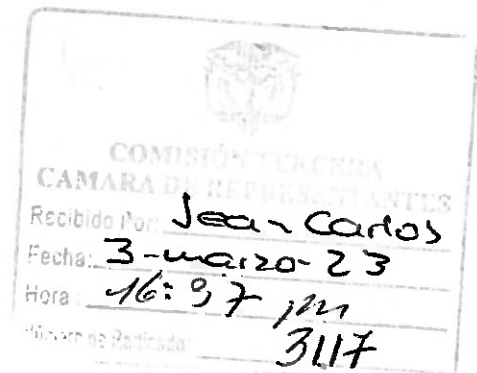 COMISIÓN TERCERA
CAMARA DE REPRESENTANTES
Recibido Por: Jean Carlos
Fecha: 3-marzo-23
Hora: 16:37 pm
Número de Radicado: 3117